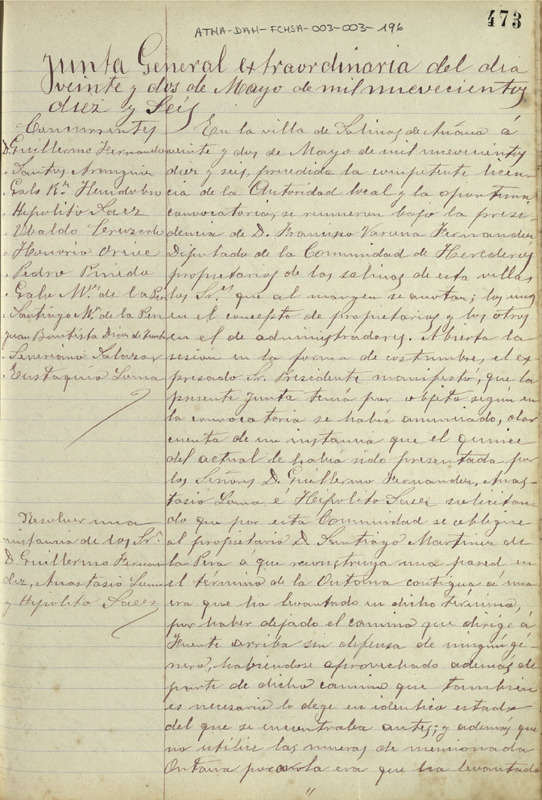 473
ATHA-DAH-FCHSA-003-003-196
Junta General extraordinaria del dia
veinte y dos de Mayo de mil nuevecientos
diez y Seis
Concurrentes
D. Guillermo Fernandez
" Santos Arenguia
" Galo Rz. Hendobro
" Hipolito Saez
" Ubaldo
" Honorio Orive
" Pedro Pinedo
" Galo Mz. de la Pera
" Santiago Mz. de la Pera
Juan Bautista Diaz de
" Severiano Salazar
" Eustaquio Loma
En la villa de Salinas de Añana á
veinte y dos de Mayo de mil nuevecientos
diez y seis, precedida la competente licen-
cia de la Autoridad local y la oportuna
convocatoria, se reunieron bajo la presi-
dencia de D. Francisco Varona Fernandez
Diputado de la Comunidad de Herederos
propietarios de las salinas de esta villa,
los Sres. que al margen se anotan; los unos
en el concepto de propietarios y los otros
en el de administradores. Abierta la
sesion en la forma de costumbre, el ex-
presado Sr. Presidente manifestó, que la
presente Junta tenia por objeto segun en
la convocatoria se habia anunciado, dar
cuenta de una instancia que el quince
del actual le habia sido presentada por
los Señores D. Guillermo Fernandez, Anas-
tasio Loma é Hipolito Saez solicitan-
do que por esta Comunidad se obligue
al propietario D. Santiago Martinez de
la Pera á que reconstruya una pared en
el termino de la Ontana contigua á una
era que ha levantado en dicho término,
por haber dejado el camino que dirige á
Fuente arriba sin defensa de ningún gé-
nero, habiéndose aprovechado además de
parte de dicho camino que tambien
es necesario lo deje en identico estado
del que se encontraba antes; y además que
no utilice las mueras de mencionada
Ontana para la era que ha levantado
Resolver una
instancia de los Sres.
D. Guillermo Fernan-
dez, Anastasio Loma
y Hipolito Saez
"